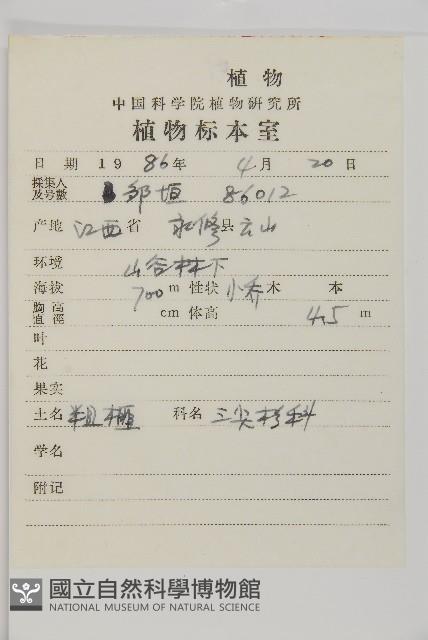 植物
中国科学院植物研究所
植物标本室
日期 19 86年 4月 20日
採集人及号數 邹垣 86012
产地 江西省 永修县 云山
环境 山谷林下
海拔 700 m 性状 小乔木 本
胸高直徑 cm 体高 4.5 m
叶
花
果实
土名 粗榧 科名 三尖杉科
学名
附记
國立自然科學博物館
NATIONAL MUSEUM OF NATURAL SCIENCE